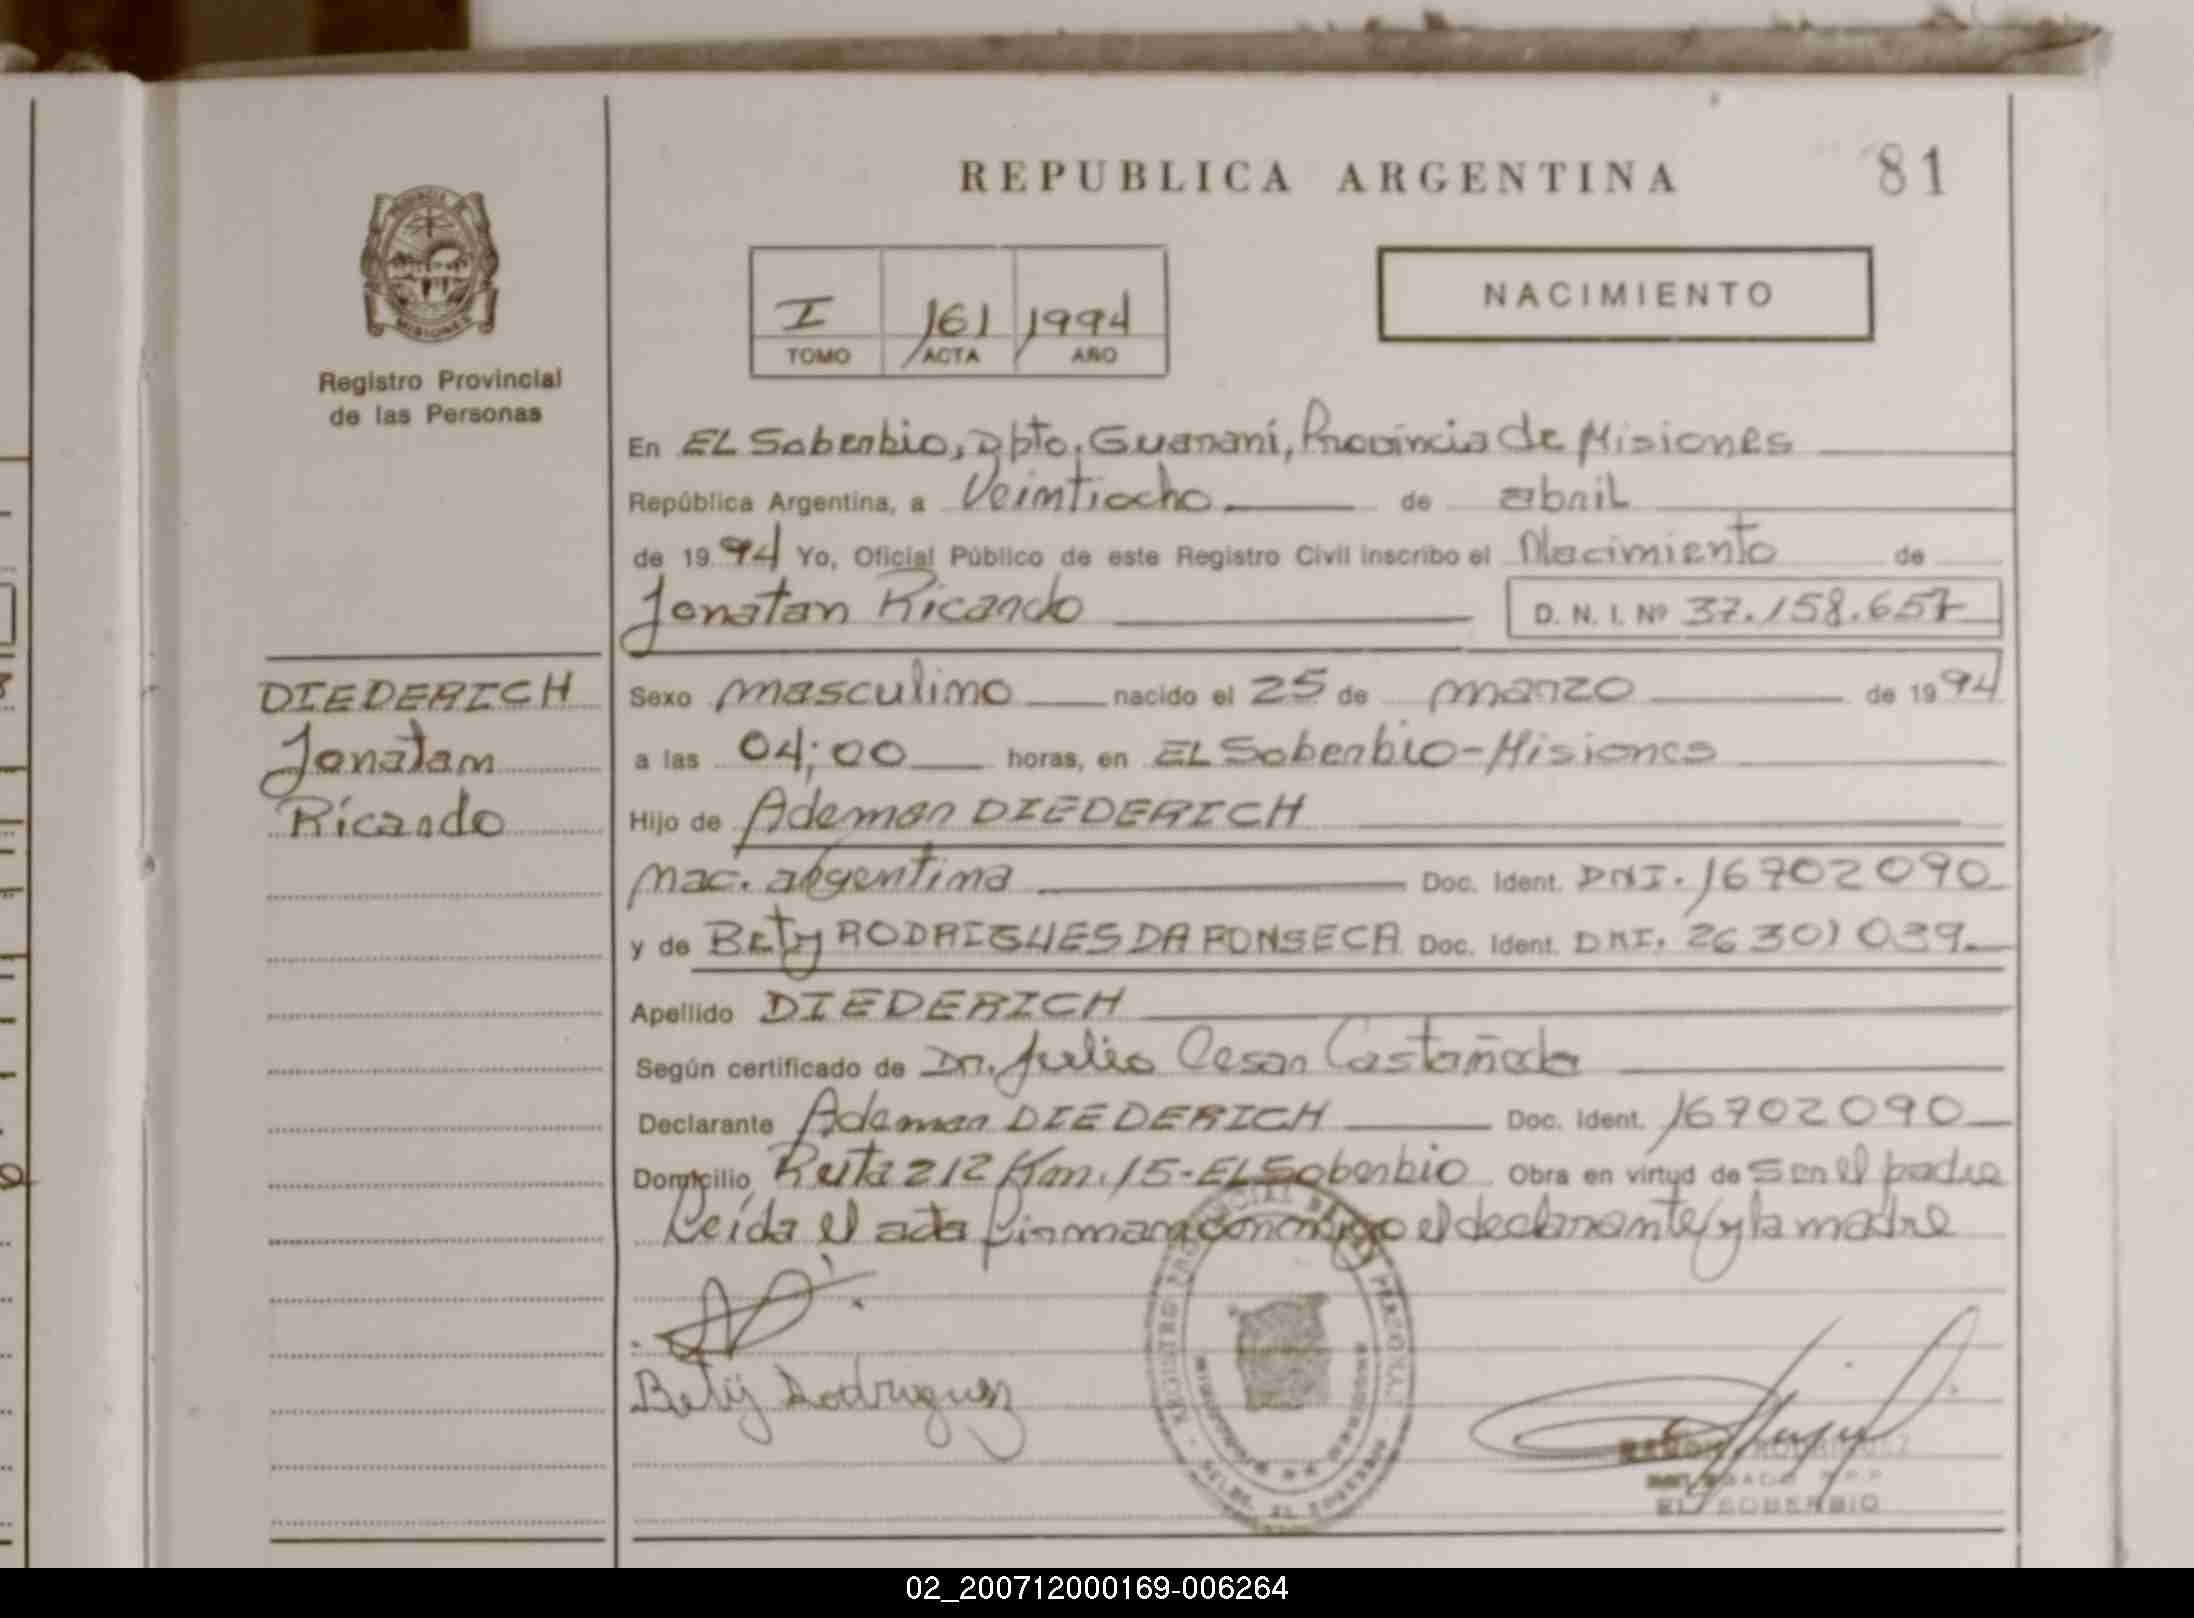 REPUBLICA ARGENTINA 81
MISIONES
Registro Provincial
de las Personas
I 161 1994
TOMO ACTA AÑO
NACIMIENTO
En EL Soberbio, Dpto. Guaraní, Provincia de Misiones
República Argentina, a Veintiocho de abril
de 1994 Yo, Oficial Público de este Registro Civil inscribo el Nacimiento de
Jonatan Ricardo D. N. I. Nº 37.158.657
DIEDERICH
Jonatan
Ricardo
Sexo masculino nacido el 25 de marzo de 1994
a las 04;00 horas, en EL Soberbio-Misiones
Hijo de Ademar DIEDERICH
nac. argentina Doc. Ident. DNI. 16702090
y de Bety RODRIGUES DA FONSECA Doc. Ident. DNI. 26301039.
Apellido DIEDERICH
Según certificado de Dr. Julio Cesar Castañeda
Declarante Ademar DIEDERICH Doc. Ident. 16702090
Domicilio Ruta 212 Km. 15-El Soberbio Obra en virtud de Ser el padre
Leída el acta firman conmigo el declarante y la madre
Bety Rodriguez
RODRIGUEZ
EL SOBERBIO
02_200712000169-006264